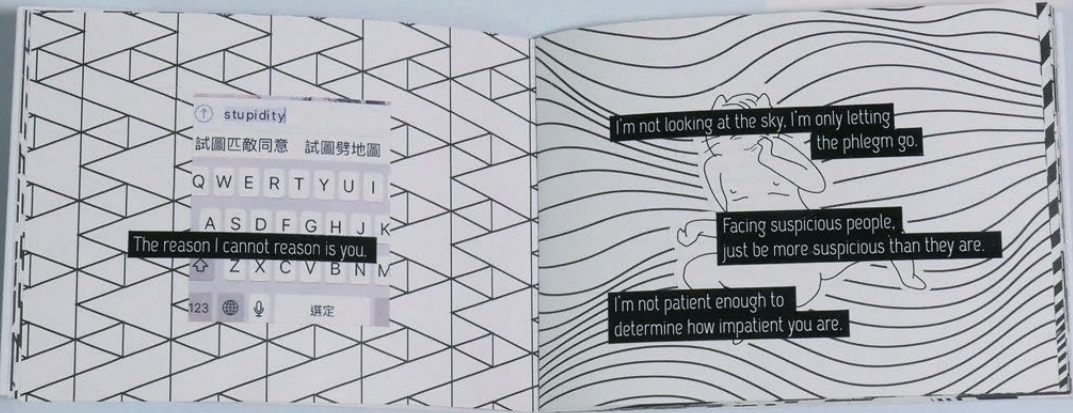 stupidity
試圖匹敵同意 試圖劈地圖
Q W E R T Y U I
A S D F G H J K
The reason I cannot reason is you.
Z X C V B N M
123 選定
I'm not looking at the sky, I'm only letting
the phlegm go.
Facing suspicious people,
just be more suspicious than they are.
I'm not patient enough to
determine how impatient you are.